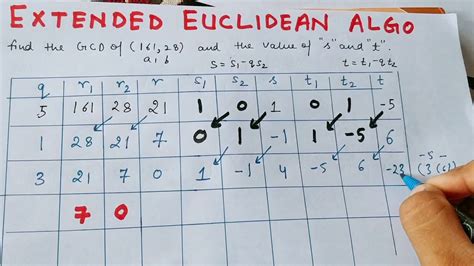 EXTENDED EUCLIDEAN ALGO
find the GCD of (161,28) and the value of "s" and "t".
a, b s = s₁-qs₂ t = t₁-qt₂
q r₁ r₂ r s₁ s₂ s t₁ t₂ t
5 161 28 21 1 0 1 0 1 -5
1 28 21 7 0 1 -1 1 -5 6
3 21 7 0 1 -1 4 -5 6 -23
-5 -
(3(6)
7 0